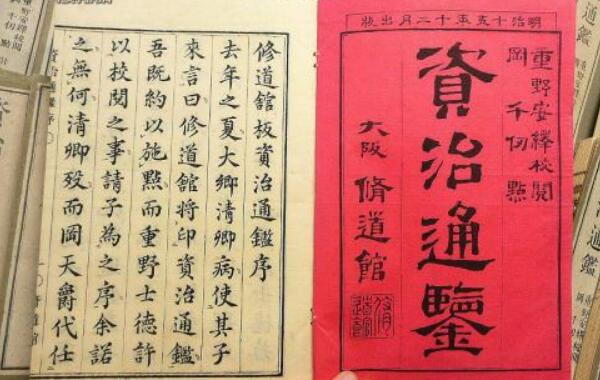 明治十五年十二月出版
重野安繹校閲
岡千仞點
資治通鑒
大阪脩道館
修道館板資治通鑑序
去年之夏大鄉清卿病使其子
來言曰修道館將印資治通鑑
吾既約以施點而重野士德許
以校閲之事請子為之序余諾
之無何清卿歿而岡天爵代任
資治通鑑序
通鑑